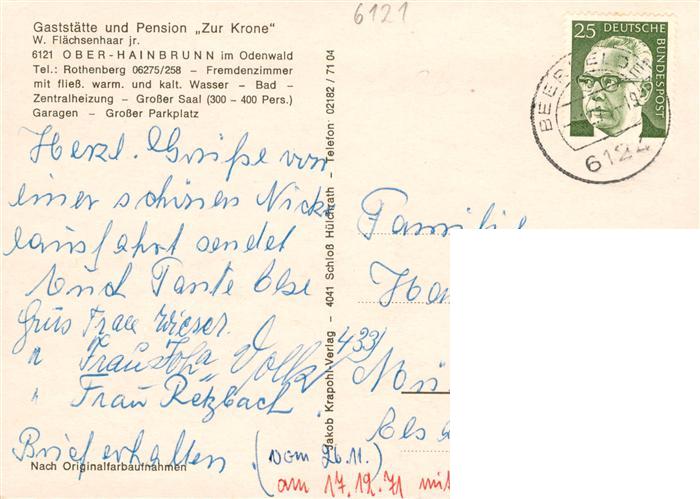 6121
Gaststätte und Pension „Zur Krone"
W. Flächsenhaar jr.
6121 OBER-HAINBRUNN im Odenwald
Tel.: Rothenberg 06275/258 – Fremdenzimmer
mit fließ. warm. und kalt. Wasser – Bad –
Zentralheizung – Großer Saal (300 – 400 Pers.)
Garagen – Großer Parkplatz
Herzl. Grüße von
einer schönen
ausfahrt sendet
Euch Tante Else
Frau Wieser.
" Frau Volk
" Frau Retzbach.
Brief erhalten (vom 26.11.)
am 17.12.71 mit
Nach Originalfarbaufnahmen
Jakob Krapohl-Verlag – 4041 Schloß Hülchrath – Telefon 02182 / 71 04
25 DEUTSCHE
BUNDESPOST
6124
Familie
433